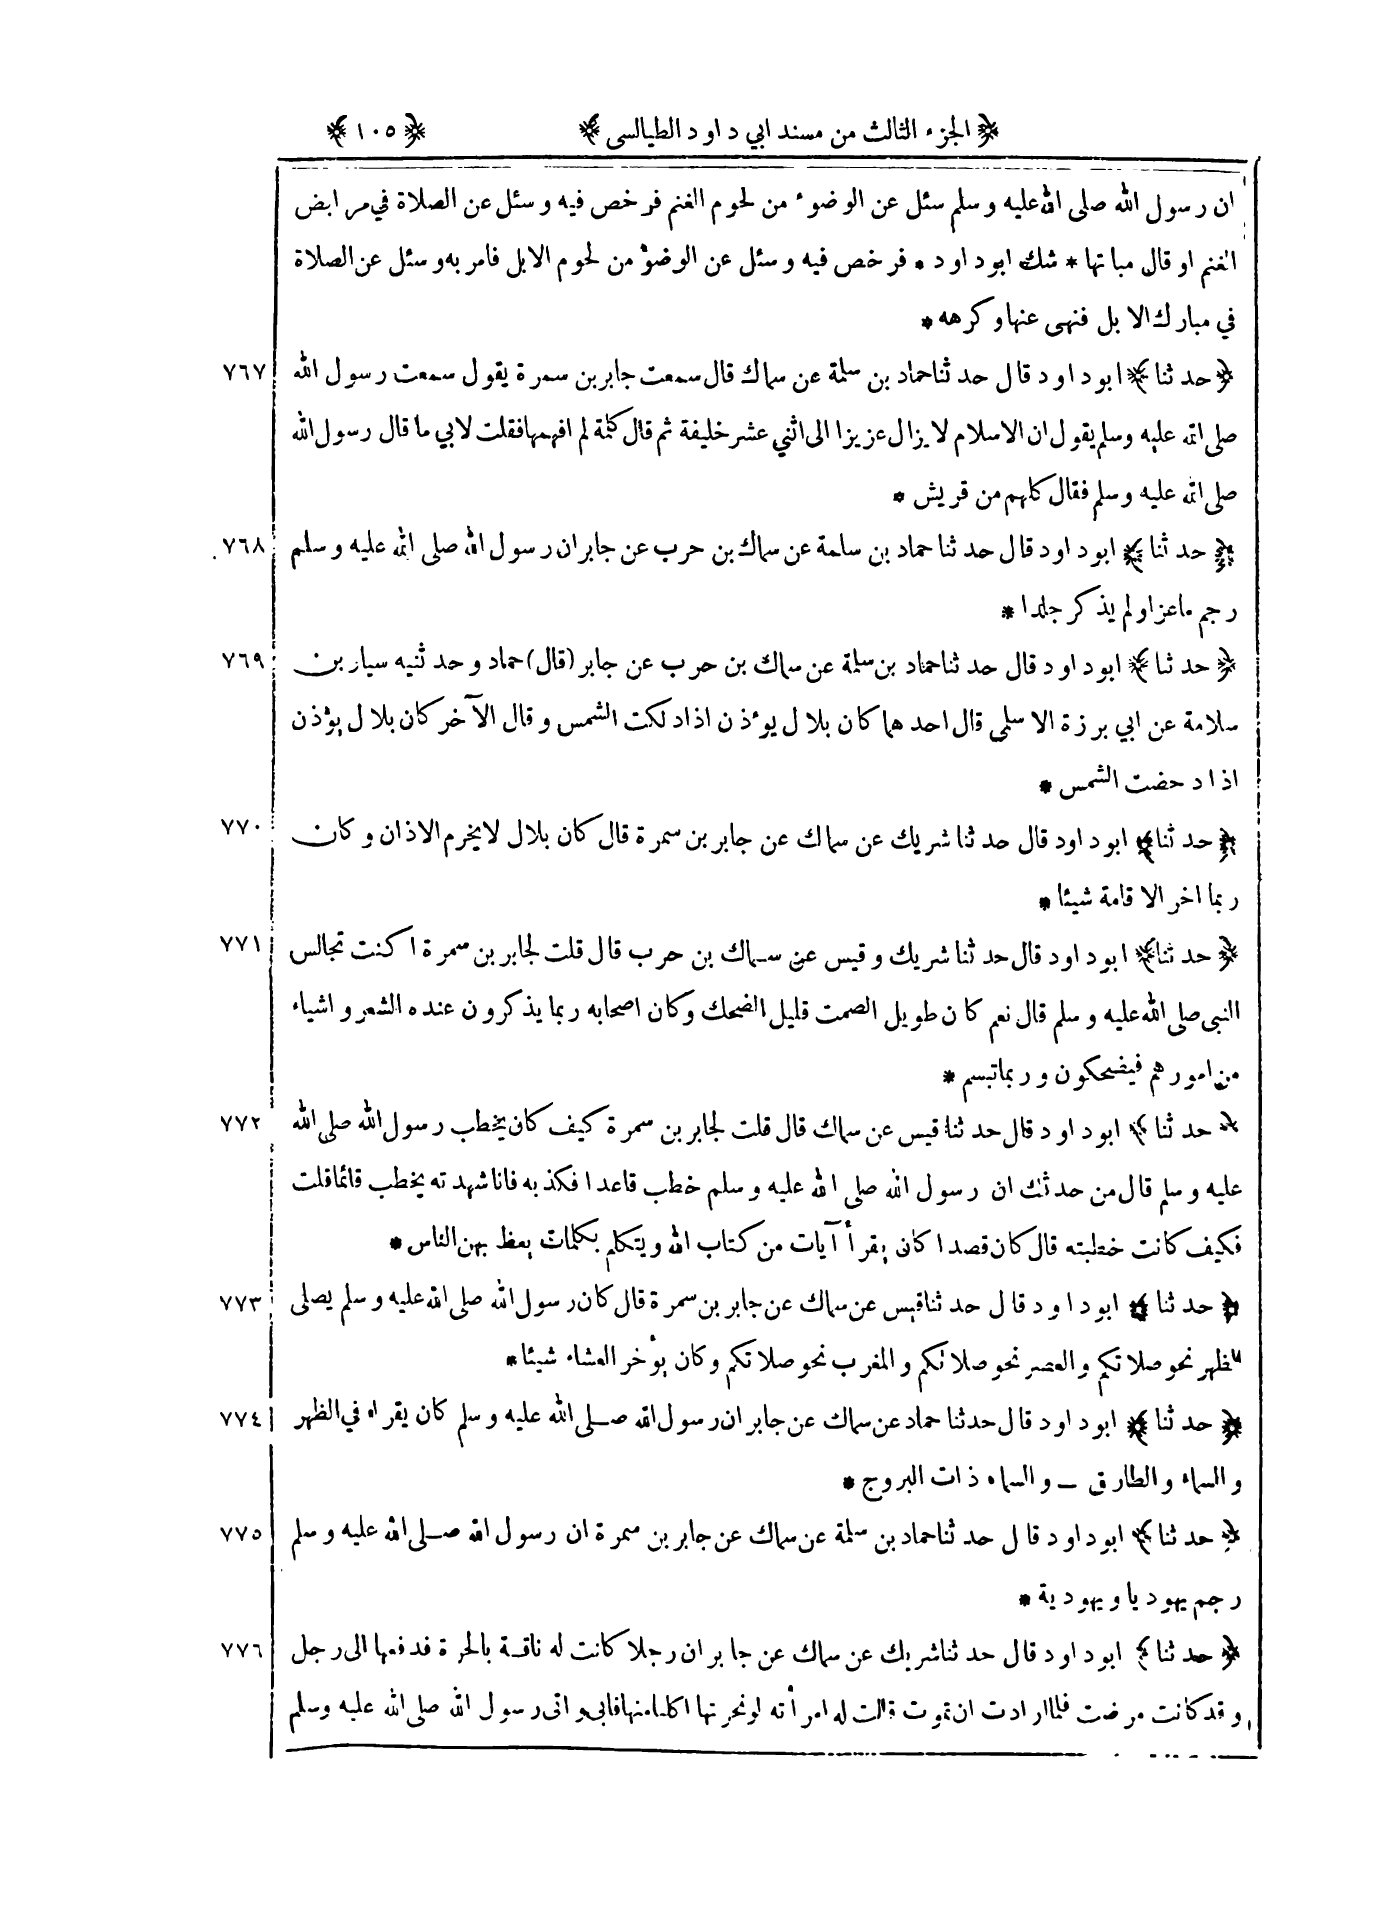 ﴿ الجزء الثالث من مسند ابي داود الطيالسى ﴾ ﴿ ١٠٥ ﴾
ان رسول الله صلى الله عليه وسلم سئل عن الوضوء من لحوم الغنم فرخص فيه وسئل عن الصلاة في مرابض
الغنم او قال مباتها * شك ابوداود * فرخص فيه وسئل عن الوضوْ من لحوم الابل فامر به وسئل عن الصلاة
في مبارك الابل فنهى عنها وكرهه *
﴿ حدثنا ﴾ ابوداود قال حدثنا حماد بن سلمة عن سماك قال سمعت جابر بن سمرة يقول سمعت رسول الله ٧٦٧
صلى الله عليه وسلم يقول ان الاسلام لايزال عزيزا الى اثني عشر خليفة ثم قال كلمة لم افهمها فقلت لابي ما قال رسول الله
صلى الله عليه وسلم فقال كلهم من قريش *
﴿ حدثنا ﴾ ابوداود قال حدثنا حماد بن سلمة عن سماك بن حرب عن جابر ان رسول الله صلى الله عليه وسلم ٧٦٨
رجم ماعزا ولم يذكر جلدا *
﴿ حدثنا ﴾ ابوداود قال حدثنا حماد بن سلمة عن سماك بن حرب عن جابر (قال) حماد وحدثنيه سيار بن ٧٦٩
سلامة عن ابي برزة الاسلمى قال احدهما كان بلال يوءذن اذا دلكت الشمس وقال الآخر كان بلال يؤذن
اذا دحضت الشمس *
﴿ حدثنا ﴾ ابوداود قال حدثنا شريك عن سماك عن جابر بن سمرة قال كان بلال لايخرم الاذان وكان ٧٧٠
ربما اخر الاقامة شيئا *
﴿ حدثنا ﴾ ابوداود قال حدثنا شريك وقيس عن سماك بن حرب قال قلت لجابر بن سمرة اكنت تجالس ٧٧١
النبى صلى الله عليه وسلم قال نعم كان طويل الصمت قليل الضحك وكان اصحابه ربما يذكرون عنده الشعر واشياء
من امورهم فيضحكون وربما تبسم *
﴿ حدثنا ﴾ ابوداود قال حدثنا قيس عن سماك قال قلت لجابر بن سمرة كيف كان يخطب رسول الله صلى الله ٧٧٢
عليه وسلم قال من حدثك ان رسول الله صلى الله عليه وسلم خطب قاعدا فكذبه فانا شهدته يخطب قائما قلت
فكيف كانت خطبته قال كان قصدا كان يقرأ آيات من كتاب الله ويتكلم بكلمات يعظ بهن الناس *
﴿ حدثنا ﴾ ابوداود قال حدثنا قيس عن سماك عن جابر بن سمرة قال كان رسول الله صلى الله عليه وسلم يصلى ٧٧٣
الظهر نحو صلاتكم والعصر نحو صلاتكم والمغرب نحو صلاتكم وكان يؤخر العشاء شيئا *
﴿ حدثنا ﴾ ابوداود قال حدثنا حماد عن سماك عن جابر ان رسول الله صلى الله عليه وسلم كان يقراء في الظهر ٧٧٤
والسماء والطارق ــ والسماء ذات البروج *
﴿ حدثنا ﴾ ابوداود قال حدثنا حماد بن سلمة عن سماك عن جابر بن سمرة ان رسول الله صلى الله عليه وسلم ٧٧٥
رجم يهوديا ويهودية *
﴿ حدثنا ﴾ ابوداود قال حدثنا شريك عن سماك عن جابر ان رجلا كانت له ناقة بالحرة فدفعها الى رجل ٧٧٦
وقد كانت مرضت فلما ارادت ان تموت قالت له امرأته لو نحرتها اكلنا منها فابى واتى رسول الله صلى الله عليه وسلم